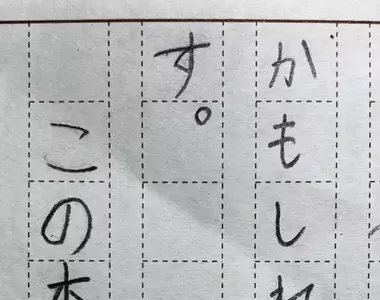 かもしれ
す。
この本